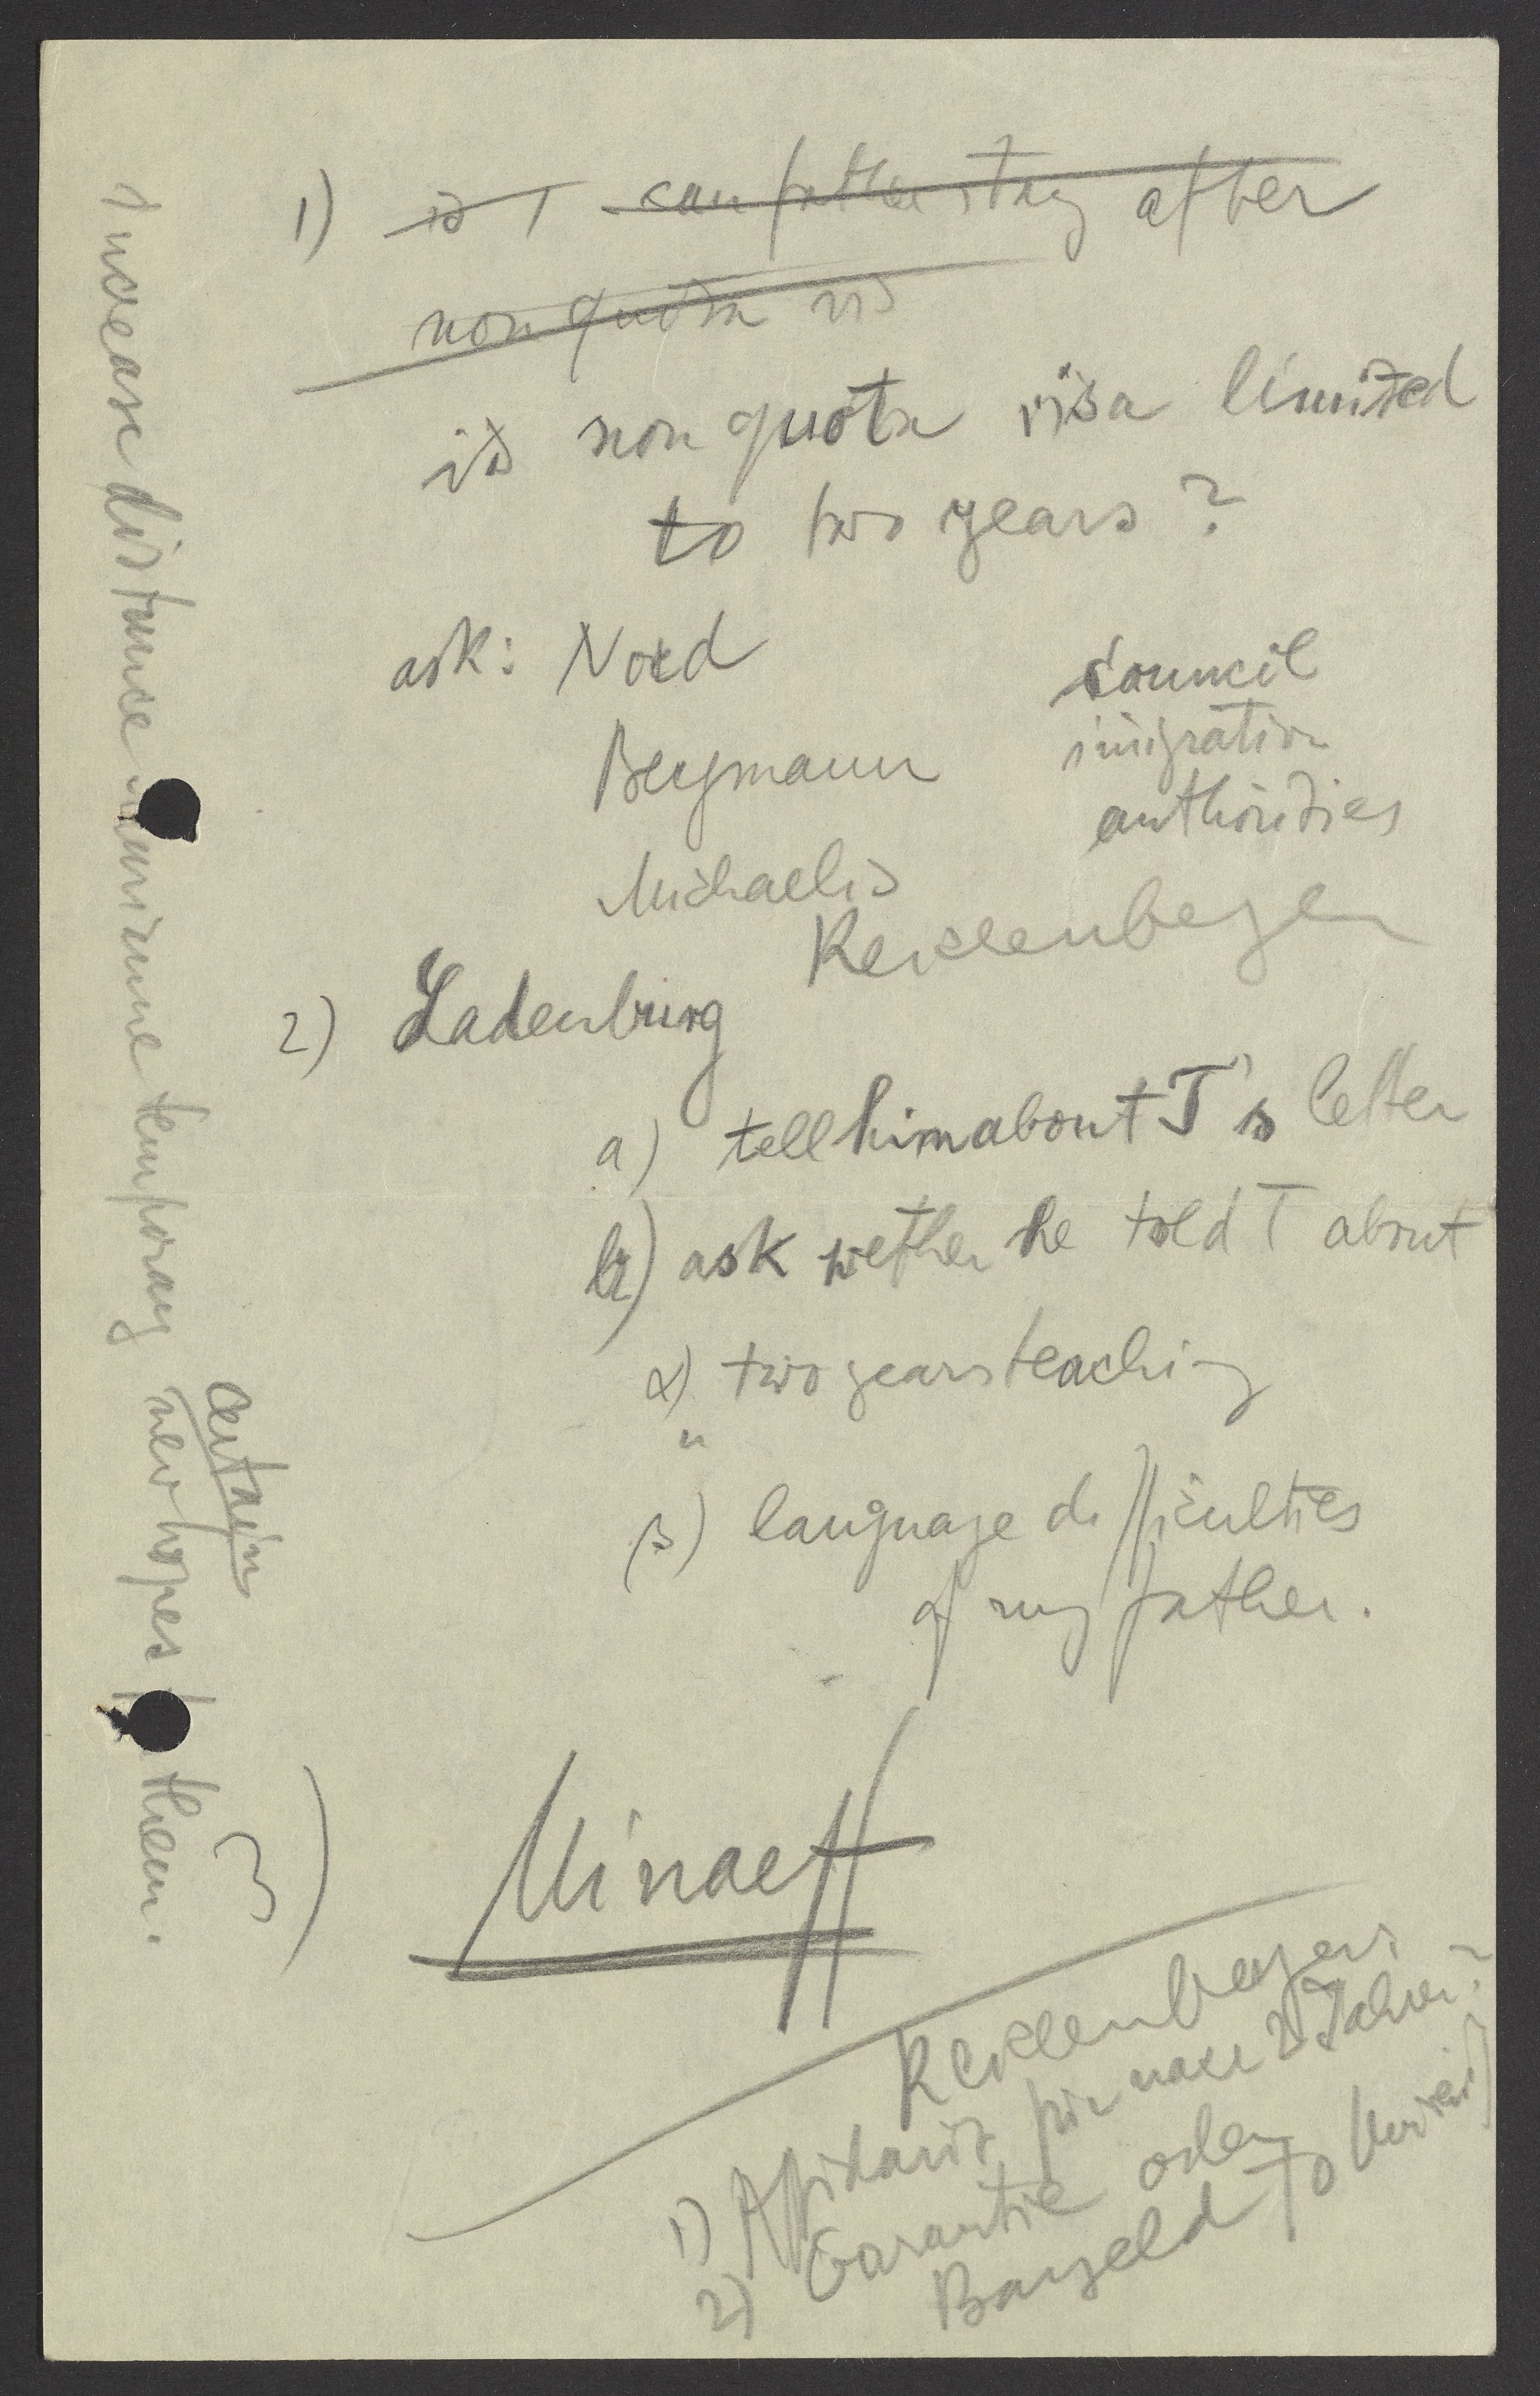 1) is T can father stay after
non quota vis
is non quota visa limited
to two years?
ask: Nord
Council
Bergmann
imigration
authorities
Michaelis
Reissenberger
2) Ladenburg
a) tell him about T's letter
b) ask wether he told T about
α) two years teaching
"
β) language difficulties
of my father.
3) Minaeff
1) Affidavit für nach 2 Jahren?
2) Garantie oder
Bargeld to
increase distance temporary
certain
new hopes them.